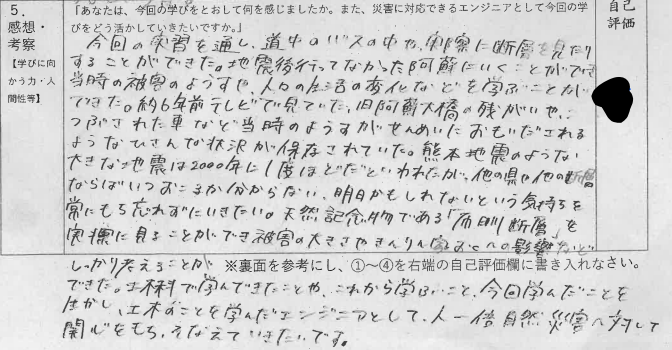 5.
感想・
考察
【学びに向
かう力・人
間性等】
「あなたは、今回の学びをとおして何を感じましたか。また、災害に対応できるエンジニアとして今回の学
びをどう活かしていきたいですか。」
自己
評価
今回の実習を通し、道中のバスの中や、実際に断層を見たり
することができた。地震後行ってなかった阿蘇にいくことができ
当時の被害のようすや、人口の生活の変化などを学ぶことが
できた。約6年前テレビで見ていた、旧阿蘇大橋の残がいや、
つぶされた車など当時のようすがせんめいにおもいだされる
ようなひさんな状況が保存されていた。熊本地震のような
大きな地震は2000年に1度ほどだといわれたが、他の県や他の断層
ならばいつおこるか分からない、明日かもしれないという気持ちを
常にもち忘れずにいきたい。天然記念物である「布田川断層」を
実際に見ることができ被害の大きさやきんりん への影響など
しっかり考えることが
※裏面を参考にし、①～④を右端の自己評価欄に書き入れなさい。
できた。土木科で学んできたことや、これから学ぶこと、今回学んだことを
生かし、土木のことを学んだエンジニアとして、人一倍自然災害へ対して
関心をもち、そなえていきたいです。